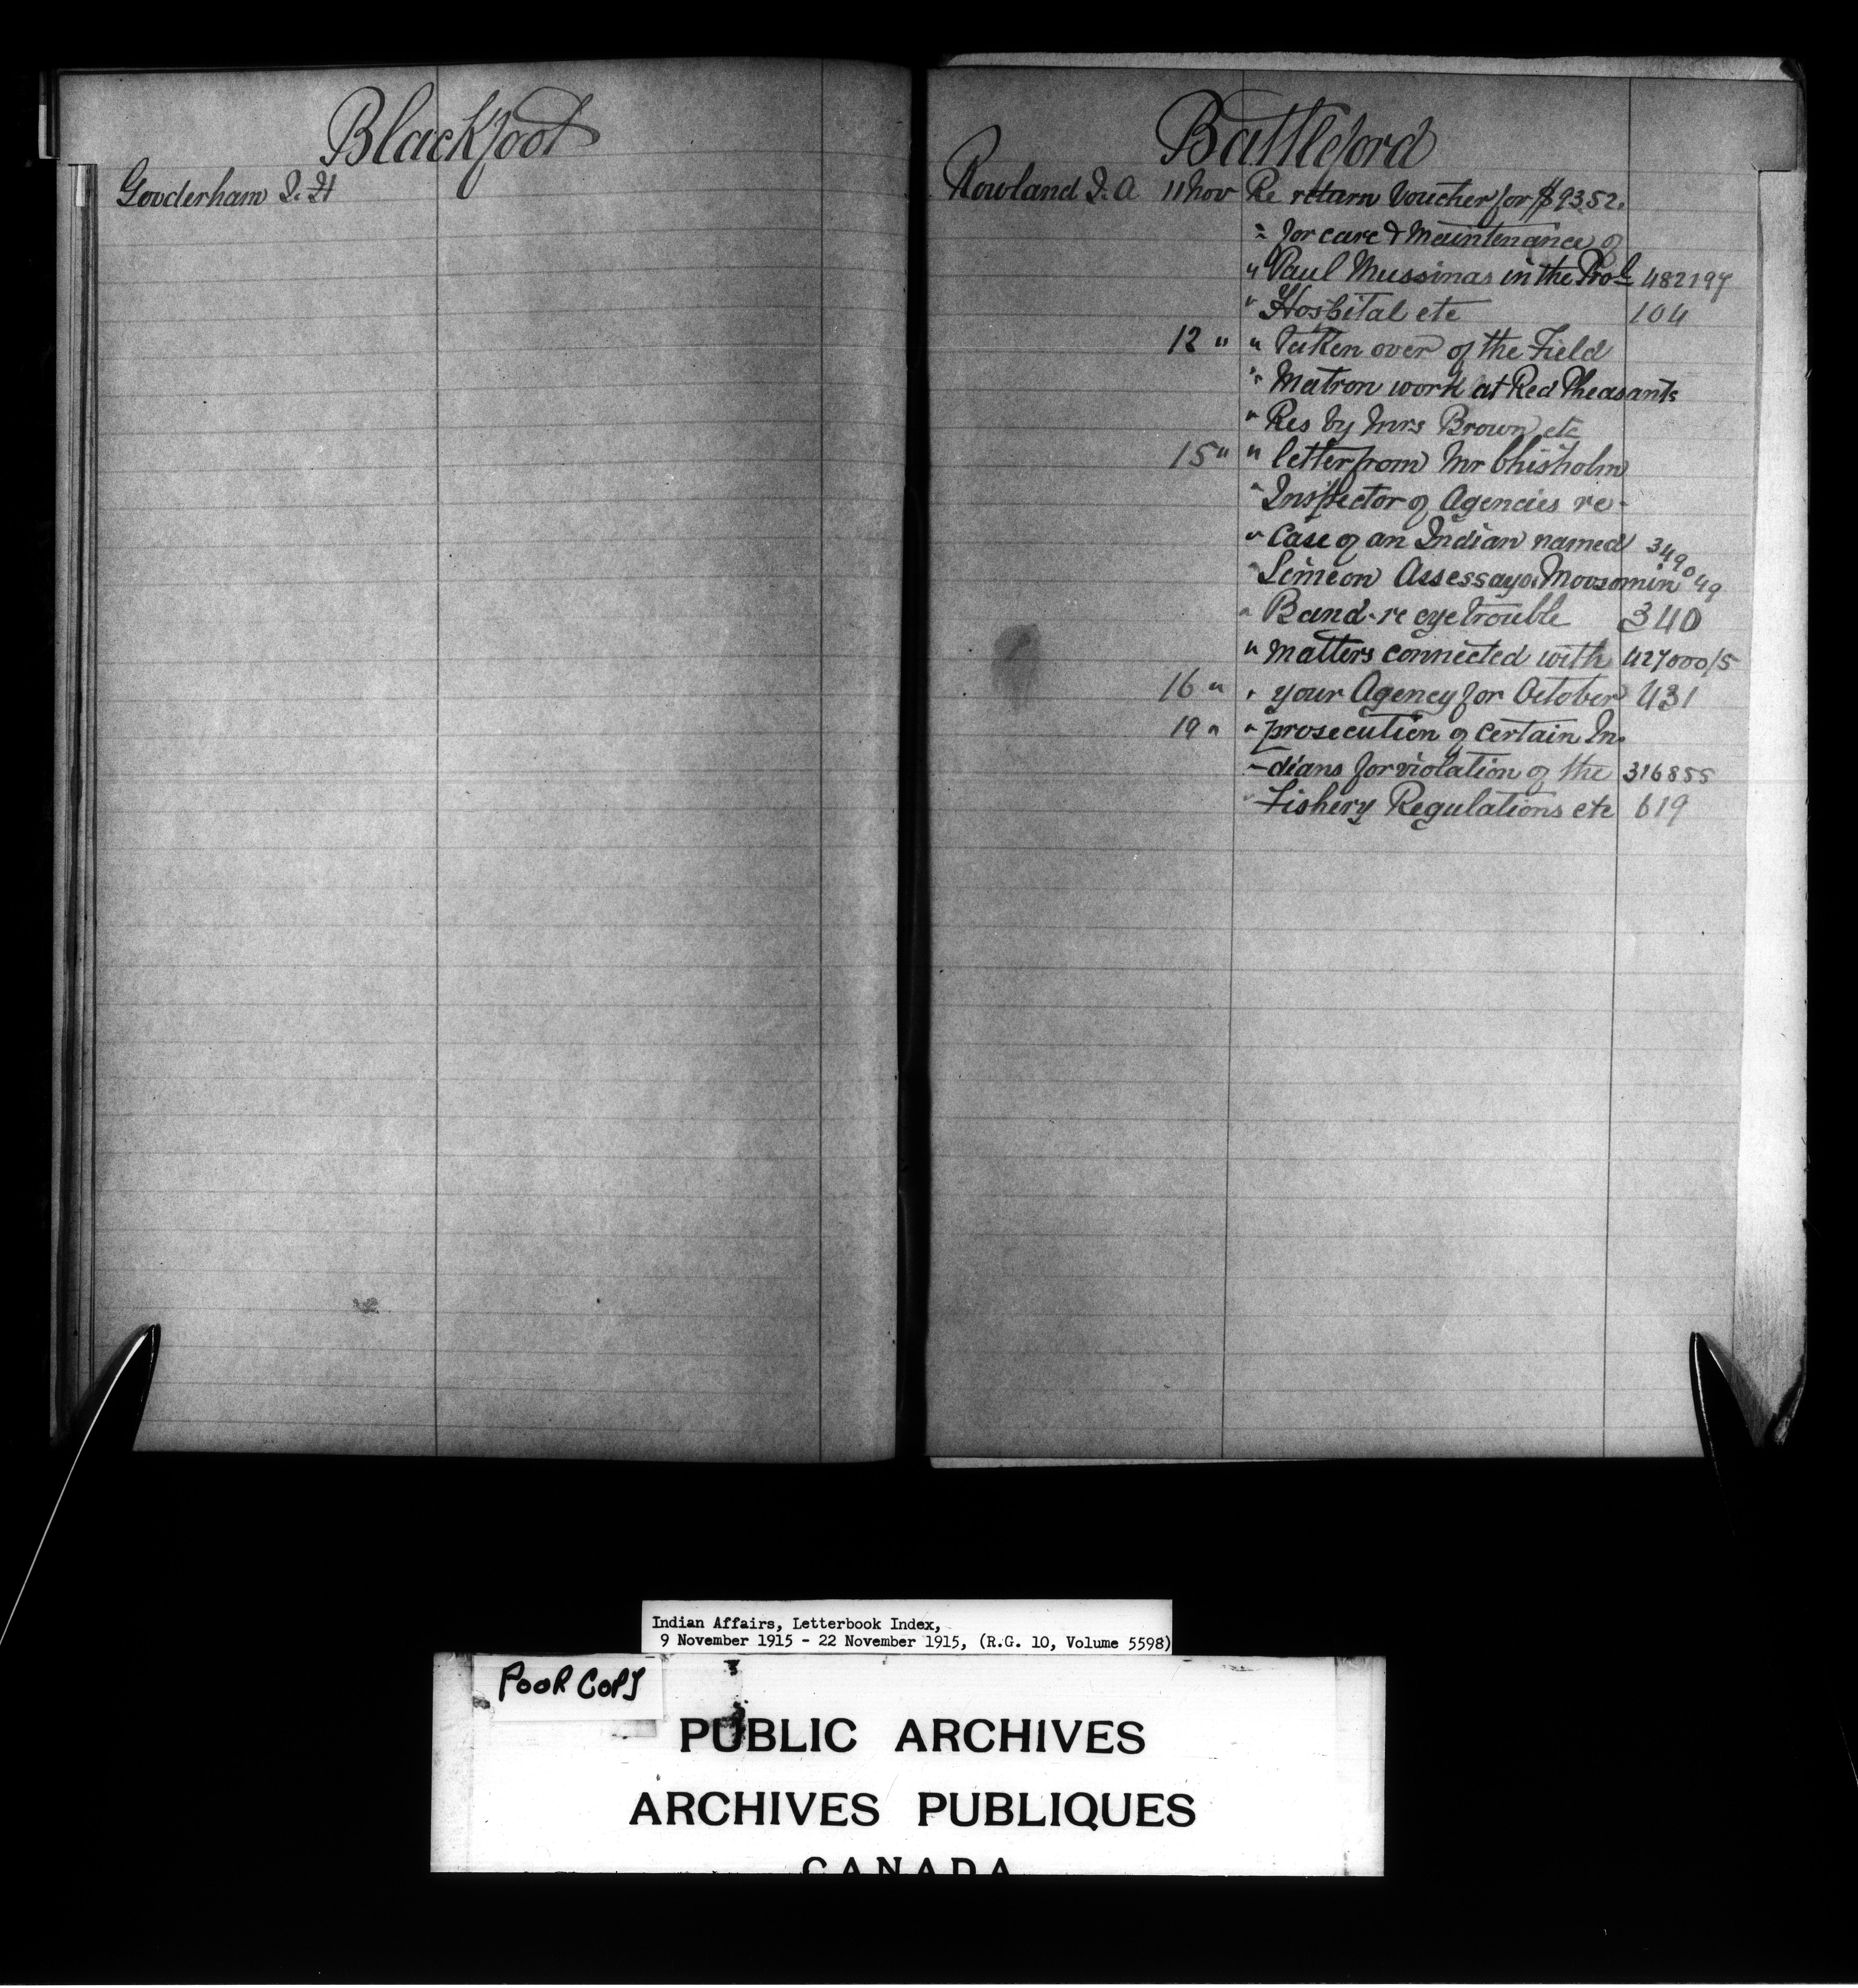 Blackfoot
Gooderham J. H
Battleford
Rowland J. A 11 Nov Re return Voucher for $93.52.
" for care & Maintenance of
" Paul Mussinas in the Prol 482197
" Hospital etc 104
12 " " Taken over of the Field
" Matron work at Red Pheasants
" Res by Mrs Brown etc
15 " " letter from Mr Chisholm
" Inspector of Agencies re-
" Case of an Indian named 349049
" Simeon Assessayo Moosomin
" Band-re eye trouble 340
" Matters connected with 427000/5
16 " " your Agency for October 431
19 " " prosecution of certain In-
" dians for violation of the 316855
" Fishery Regulations etc 619
Indian Affairs, Letterbook Index,
9 November 1915 - 22 November 1915, (R.G. 10, Volume 5598)
POOR COPY
PUBLIC ARCHIVES
ARCHIVES PUBLIQUES
CANADA